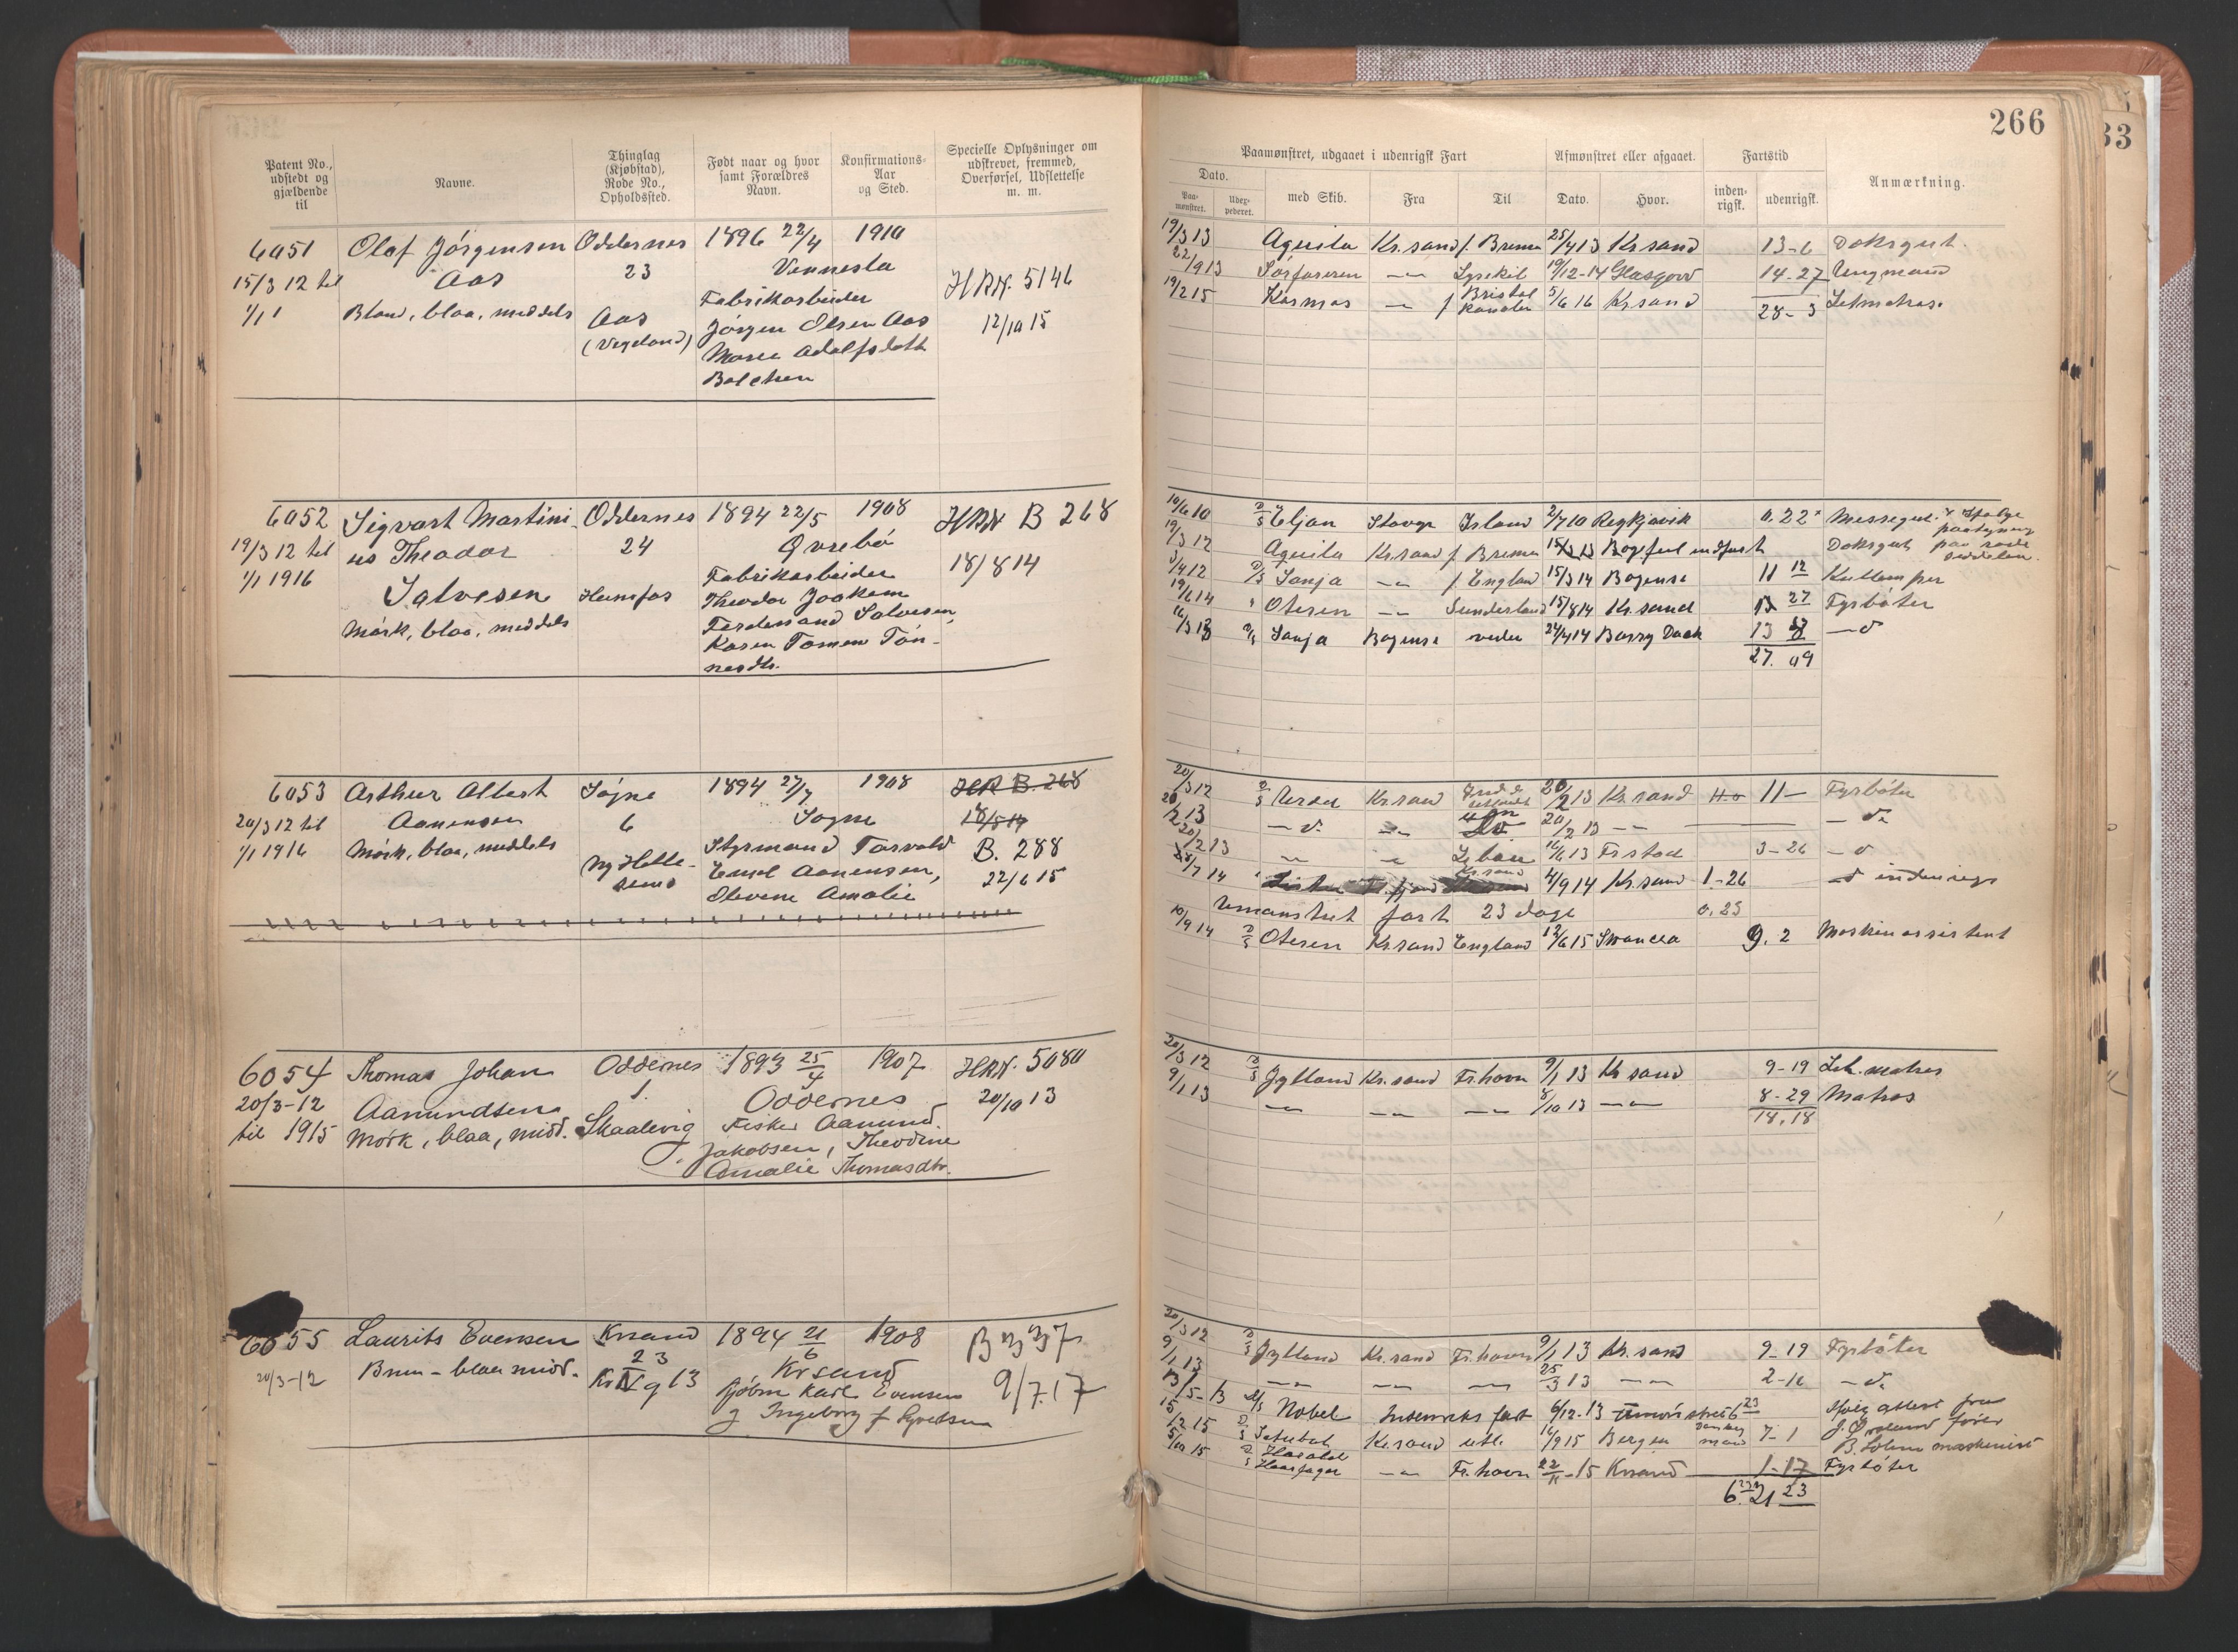 Patent No., udstedt og gjældende til
Navne.
Thinglag (Kjøbstad), Rode No., Opholdssted.
Født naar og hvor samt Forældres Navn.
Konfirmations- Aar og Sted.
Specielle Oplysninger om udskrevet, fremmed, Overførsel, Udslettelse m. m.
6051 Olaf Jörgensen Oddernes 1896 22/4 1910
15/3 12 til Aas 23 Vennesla HRN. 5146
1/1 1 Blond, blaa, meddels Aas Fabrikarbeider 12/10 15
(Vegeland) Jörgen Olsen Aas
Maria Adolfsdatt
Balchen
6052 Sigvart Martini- Oddernes 1894 22/5 1908 HRN B 268
19/3 12 til us Theodor 24 Øvrebö 18/8 14
1/1 1916 Salvesen Hunsfos Fabrikarbeider
Mörk, blaa, meddels Theodor Joakem
Ferdinand Salvesen,
Karen Tomine Tön-
nesdtr.
6053 Arthur Albert Sögne 1894 27/7 1908 HR B. 268
20/3 12 til Aanensen 6 Sogne 18/8 14
1/1 1916 Mörk, blaa, meddels Ny Helle- Styrmand Torvald B. 288
sund Emil Aanensen, 22/6 15
Stevine Amalie
6054 Thomas Johan Oddernes 1893 25/4 1907 HRN. 5080
20/3-12 Aamundsen 1 Oddernes 20/10 13
til 1915 Mörk, blaa, midd. Skaalevig Fisker Aamund
Jakobsen, Theodine
Amalie Thomasdtr.
6055 Laurits Evensen Krsand 1894 21/6 1908 B 337
20/3-12 Brun - blaa midd. 23 Krsand 9/7.17
Kr IV 9 13 Karl Evensen
g Ingeborg f Syvertsen
266
Paamønstret, udgaaet i udenrigsk Fart
Afmønstret eller afgaaet.
Fartstid
Anmærkning.
Dato.
Paa- mønstret.
Udex- pederet.
med Skib.
Fra
Til
Dato.
Hvor.
inden- rigsk.
udenrigsk.
19/3 13 Aquila Kr.sand f. Bremen 25/4 13 Kr sand 13-6 Doksgut.
22/9 13 Sörfareren -"- Lysekil 19/12-14 Glasgow 14-27 Ungmand
19/2 15 Kosmos -"- f Bristol Kanalen 5/6 16 Kr sand 28-3 Letmatros.
10/6 10 D/S Eljan Stavgr Island 2/7 10 Reykjavik 0.22 × Messegut. × Ifölge
19/3 12 Aquila Kr.sand f Bremen Doksgut
3/4 12 D/S Sonja -"- f England 15/3 14 Bogense 11 12 Kullemper
19/6 14 " Oteren -"- Sunderland 15/8 14 Kr.sand 27 Fyrböter
D/S Sonja Bogense verden 24/4 14 Barry Dock 13 -d
27. 09
20/3 12 D/S Kr.sand 20/2 13 Kr.sand 11- Fyrböter
20/2 13 -d- -"- 20/2 13 -"- -d-
20/2 13 -"- -"- 16/6 13 Frstad 3-26 -d
7 14 4/9 14 Kr.sand 1-26 -d indenrigs
Umönstret fart 23 dage 0.23
10/9 14 D/S Oteren Kr.sand England 12/6 15 Swansea 9. 2 Maskinassistent
20/3 12 D/S Jylland Kr.sand Fr.havn 9/1 13 Kr sand 9-19 Let.matros
9/1 13 -"- -"- -"- 8/10 13 -"- 8-29 Matros
18,18
20/3 12 D/S Jylland Kr.sand Fr.havn 9/1 13 Kr.sand 9-19 Fyrböter
9/1 13 -"- -"- -"- 25/3 13 -"- 2-16 -d-
Nobel Indenriks fart 6/12-13 6 23 Ifölg attest fra
15/2 15 D/S Kr.sand utl. 16/9 15 Bergen 7-1
B. maskinist
5/10 15 D/S Harald Haarfager -"- Fr.havn 22/11-15 Krsand 1-17 Fyrböter
6. 21 23